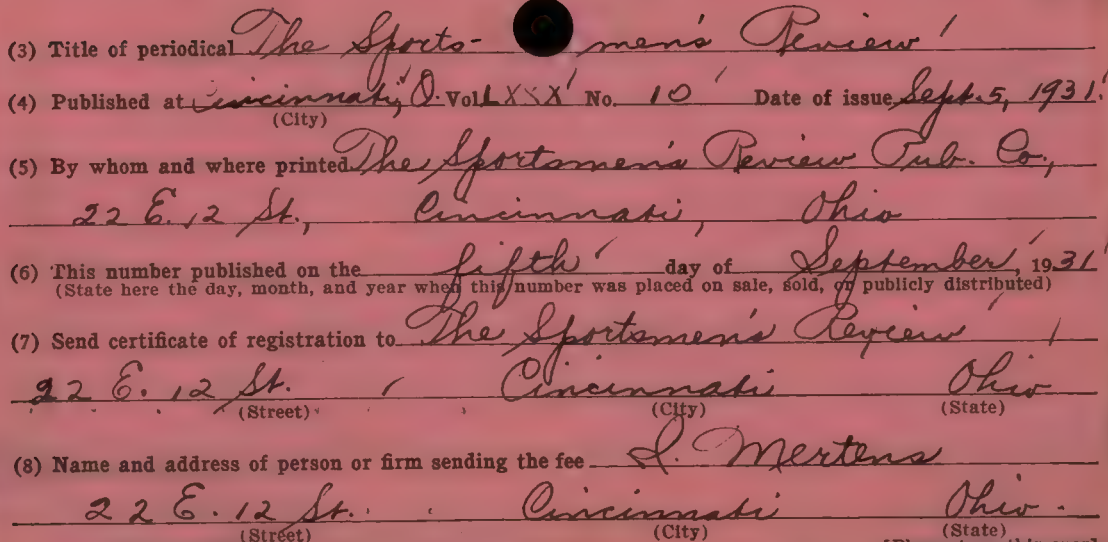 (3) Title of periodical The Sports- men's Review
(4) Published at Cincinnati, O. Vol. LXXX No. 10 Date of issue Sept. 5, 1931
(City)
(5) By whom and where printed The Sportsmen's Review Pub. Co.,
22 E. 12 St., Cincinnati, Ohio
(6) This number published on the fifth day of September, 1931
(State here the day, month, and year when this number was placed on sale, sold, or publicly distributed)
(7) Send certificate of registration to The Sportsmen's Review
22 E. 12 St. Cincinnati Ohio
(Street) (City) (State)
(8) Name and address of person or firm sending the fee S. Mertens
22 E. 12 St. Cincinnati Ohio.
(Street) (City) (State)